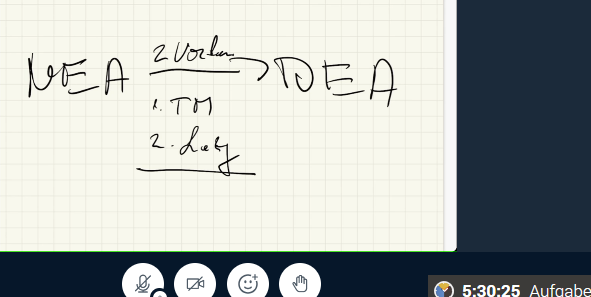 NEA 2 Vorlan → DEA
1. TM
2. Lazy
5:30:25 Aufgabe